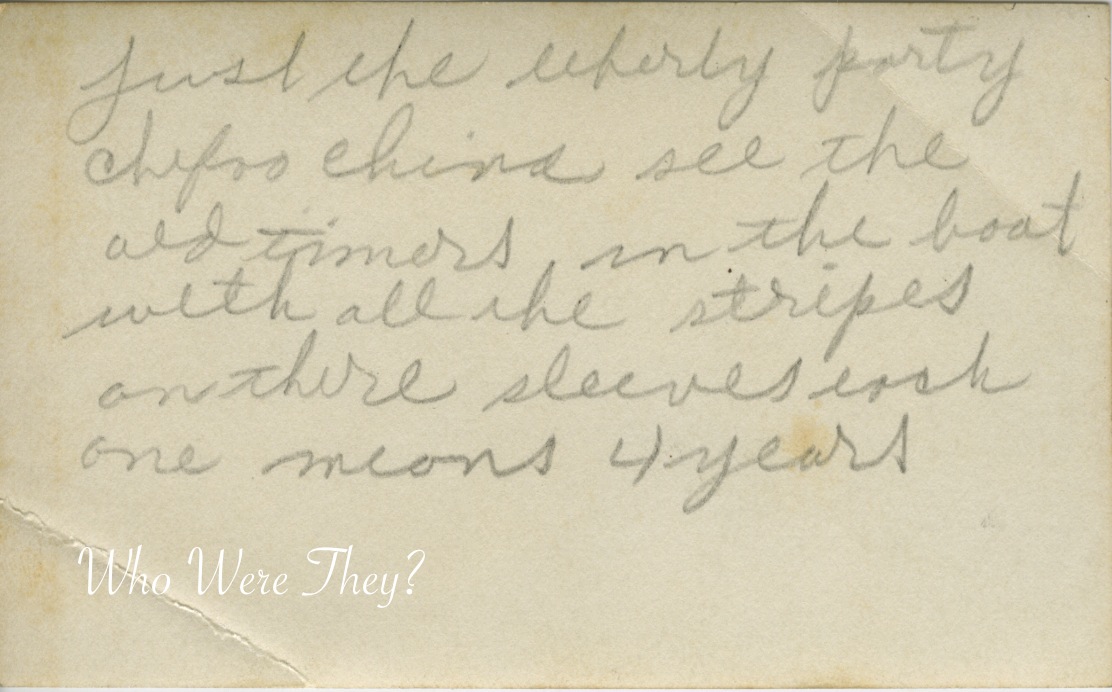 just the liberty party
chefoo china see the
old timers in the boat
with all the stripes
on there sleeves each
one means 4 years
Who Were They?